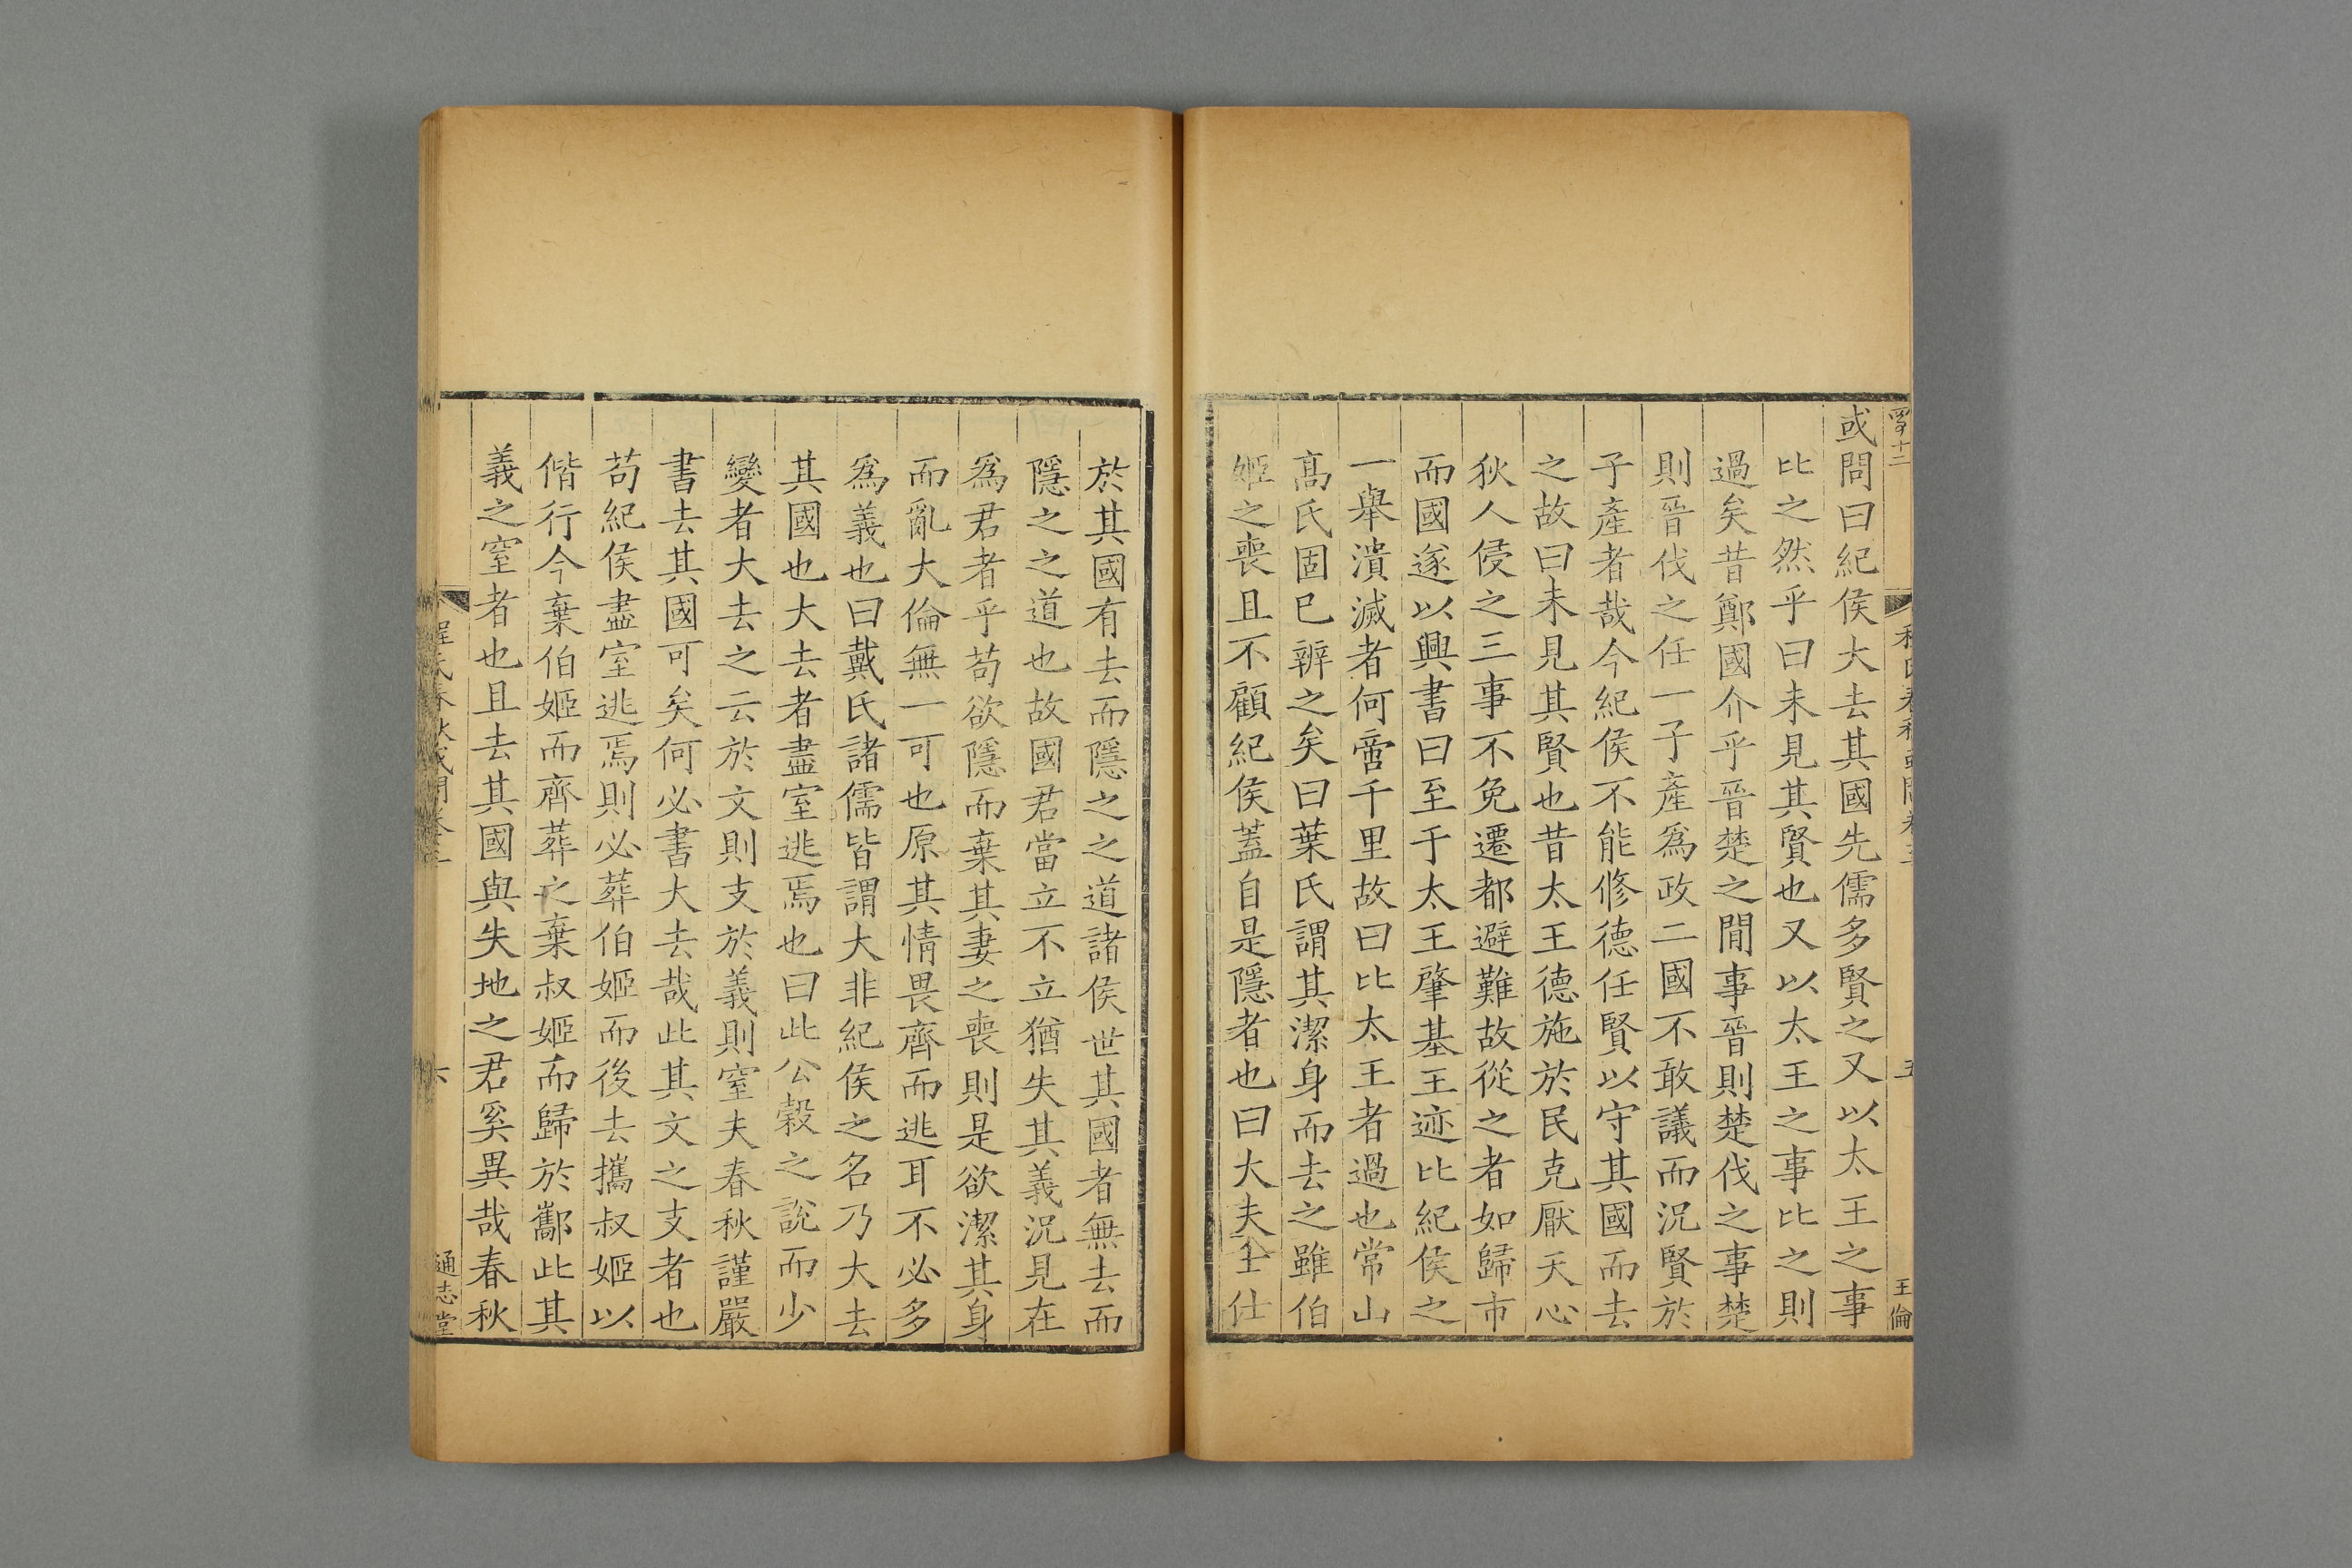 或問曰紀侯大去其國先儒多賢之又以太王之事
比之然乎曰未見其賢也又以太王之事比之則
過矣昔鄭國介乎晉楚之間事晉則楚伐之事楚
則晉伐之任一子產爲政二國不敢議而況賢於
子產者哉今紀侯不能修德任賢以守其國而去
之故曰未見其賢也昔太王德施於民克厭天心
狄人侵之三事不免遷都避難故從之者如歸市
而國遂以興書曰至于太王肇基王迹比紀侯之
一舉潰滅者何啻千里故曰比太王者過也常山
高氏固已辨之矣曰葉氏謂其潔身而去之雖伯
姬之喪且不顧紀侯蓋自是隱者也曰大夫士仕
於其國有去而隱之之道諸侯世其國者無去而
隱之之道也故國君當立不立猶失其義況見在
爲君者乎苟欲隱而棄其妻之喪則是欲潔其身
而亂大倫無一可也原其情畏齊而逃耳不必多
爲義也曰戴氏諸儒皆謂大非紀侯之名乃大去
其國也大去者盡室逃焉也曰此公穀之說而少
變者大去之云於文則支於義則窒夫春秋謹嚴
書去其國可矣何必書大去哉此其文之支者也
苟紀侯盡室逃焉則必葬伯姬而後去攜叔姬以
偕行今棄伯姬而齊葬之棄叔姬而歸於酅此其
義之窒者也且去其國與失地之君奚異哉春秋
程氏春秋或問卷三
六
通志堂
五
王倫